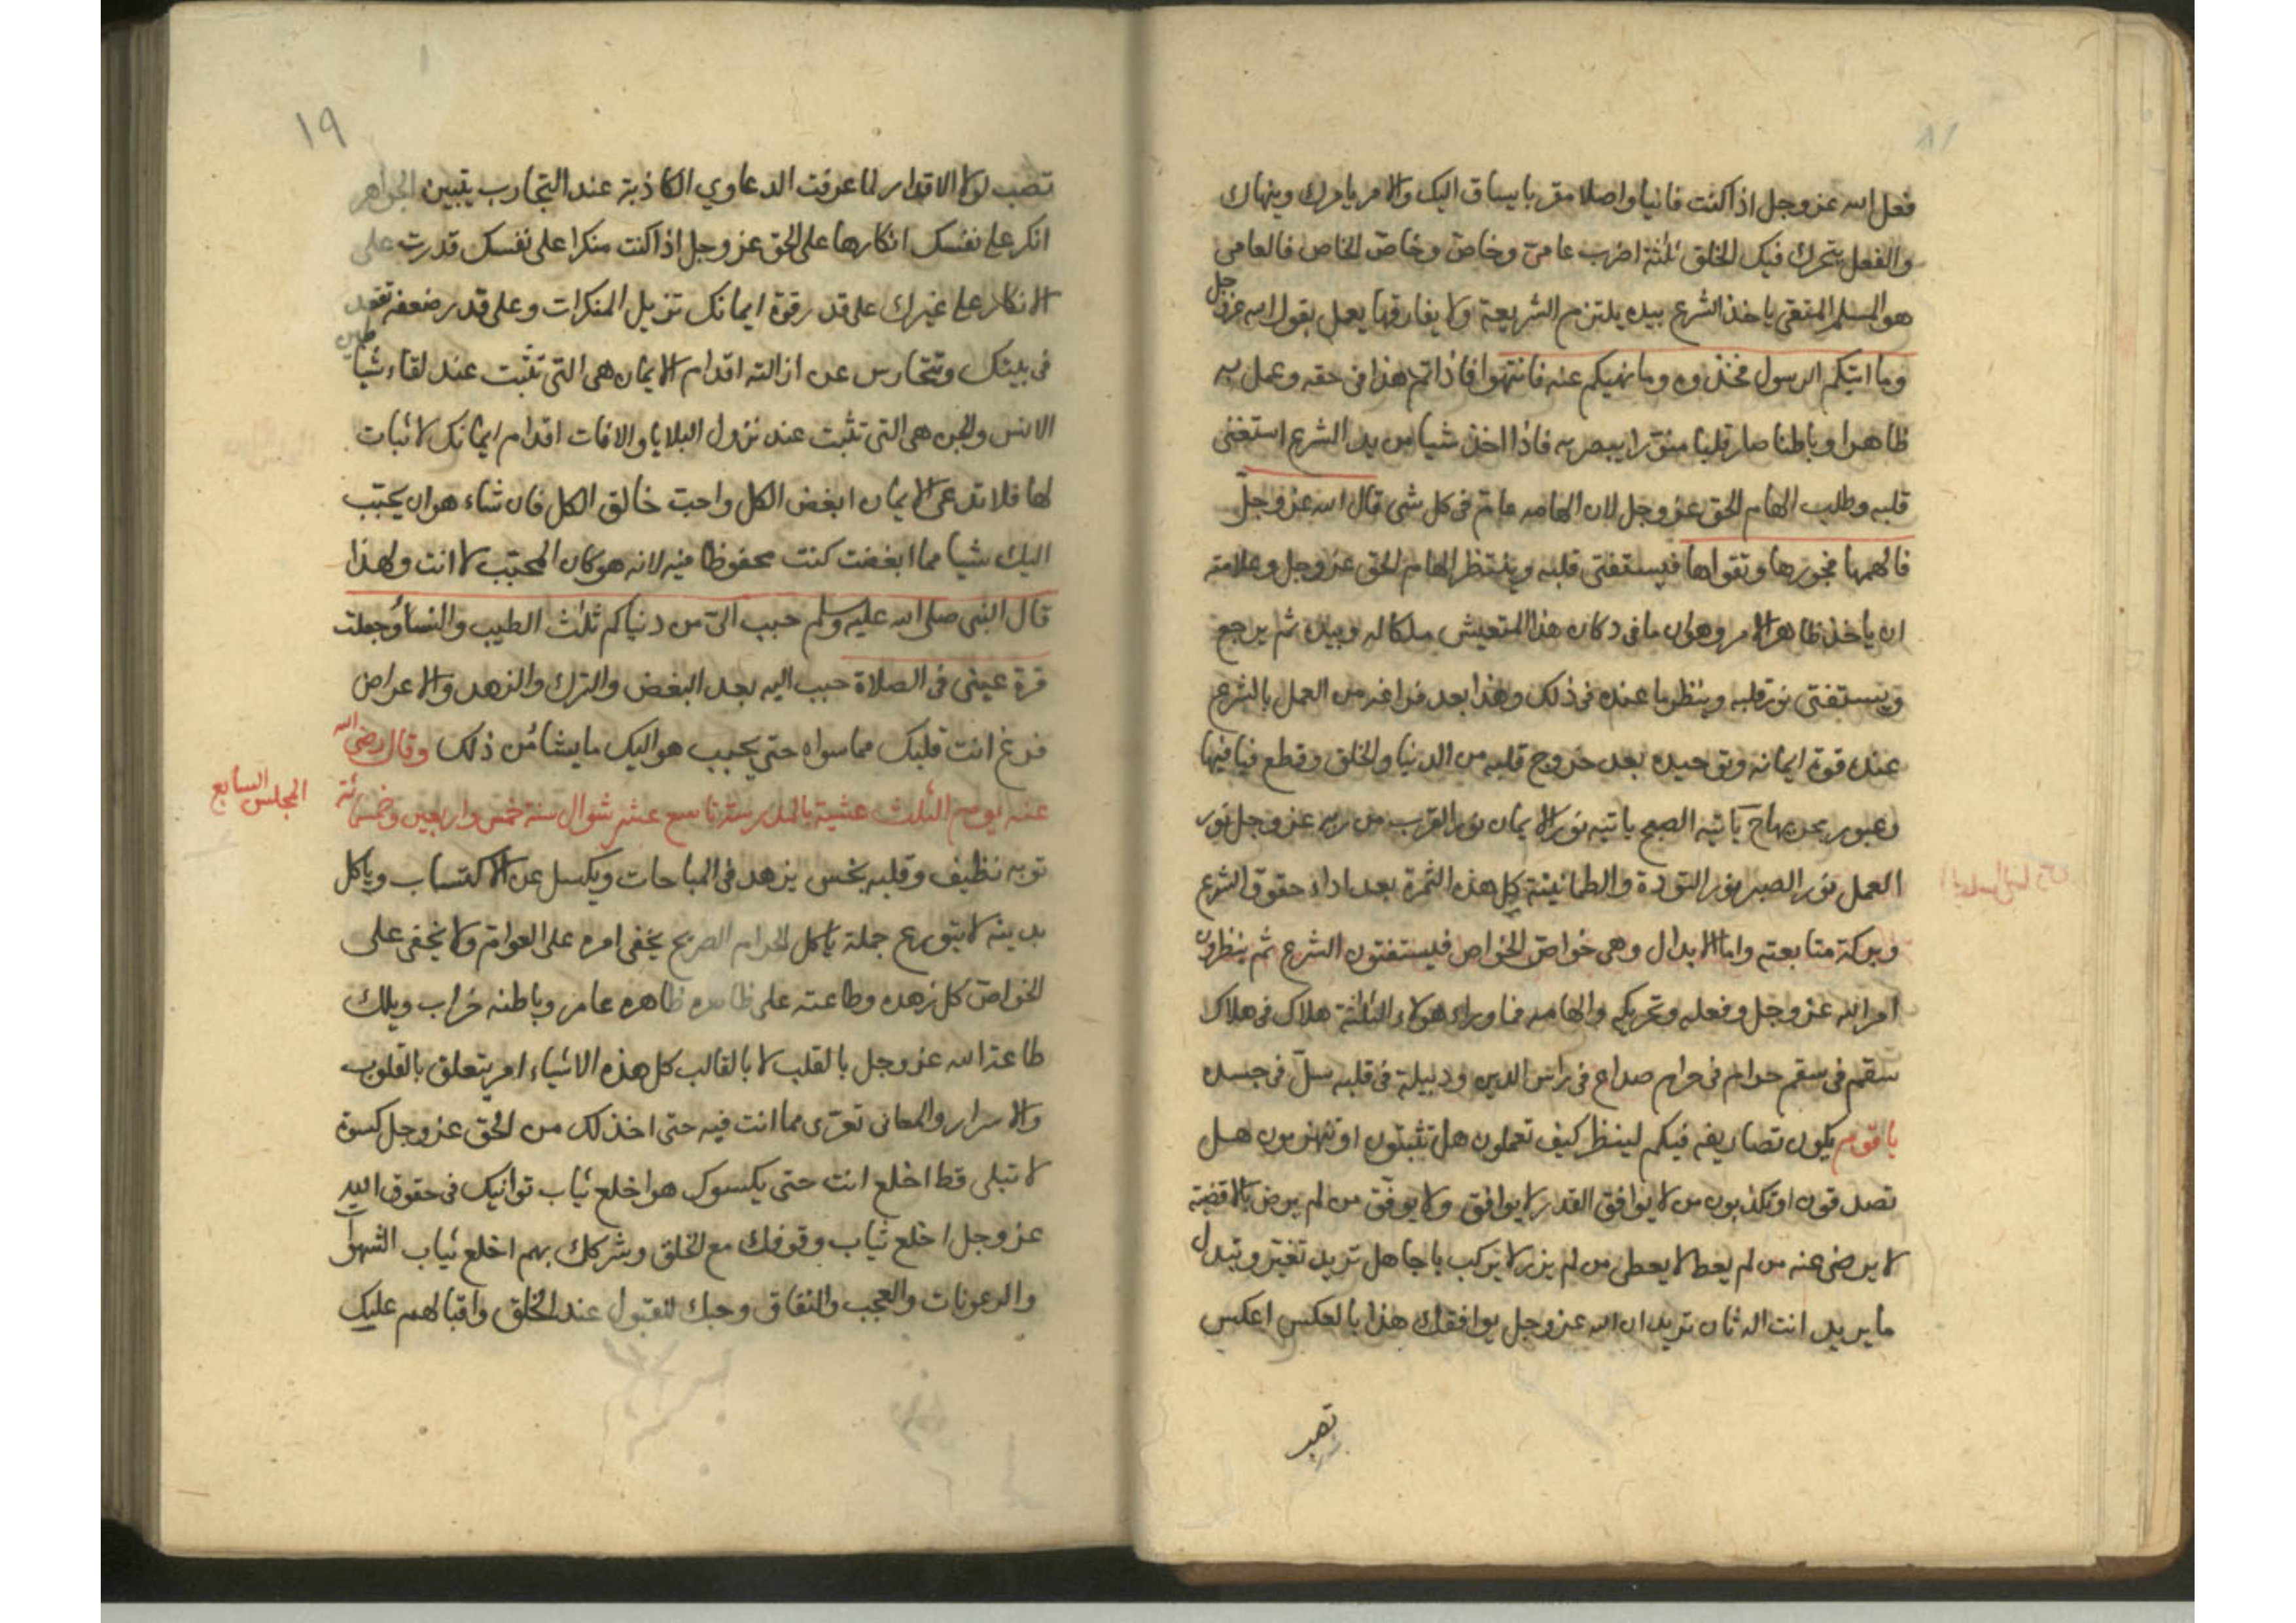 فعل الله عز وجل اذا كنت فانيا واصلا مقربا يساق اليك والامر يامرك وينهاك
والفعل يتحرك فيك الخلق ثلثة اضرب عامىّ وخاصّ وخاصّ الخاص فالعامى
هو المسلم المتقى ياخذ الشرع بيده يلتزم الشريعة ولا يفارقها يعمل بقول الله عز وجل
وما اتيكم الرسول فخذوه وما نهيكم عنه فانتهوا فاذا تم هذا فى حقه وعمل به
ظاهرا وباطنا صار قلبا منوّرا يبصر به فاذا اخذ شيا من يد الشرع استفتى
قلبه وطلب الهام الحق عز وجل لان الهامه عامّ فى كل شى قال الله عز وجلّ
فالهمها فجورها وتقواها فيستفتى قلبه وينتظر الهام الحق عز وجل وعلامته
ان ياخذ ظاهر الامر وهو ان ما فى دكان هذا المتعيش ملكا له وبيده ثم يرجع
ويستفتى نور قلبه وينظر ما عنده فى ذلك وهذا بعد فراغه من العمل بالشرع
عند قوة ايمانه وتوحيده بعد خروج قلبه من الدنيا والخلق وقطع فيافيها
وعبور بحريهاح ياتيه الصبح ياتيه نور الايمان نور القرب من ربه عز وجل نور
العمل نور الصبر نور التودة والطمانينة كل هذه الثمرة بعد اداء حقوق الشرع
وبركة متابعته واما الابدال وهى خواصّ الخواص فيستفتون الشرع ثم ينظرون
امر الله عز وجل وفعله وتحريكه والهامه فما وراء هولاء الثلثة هلاك فى هلاك
سقم فى سقم حرام فى حرام صداع فى راس الدين ودبيلة فى قلبه سلّ فى جسده
يا قوم يكون تصاريفه فيكم لينظر كيف تعملون هل تثبتون او تنهزمون هل
تصدقون او تكذبون من لا يوافق القدر لا يوافق ولا يوفّق من لم يرض بالاقضية
لا يرضى عنه من لم يعط لا يعطى من لم يزر لا يركب يا جاهل تريد تغيّر وتبدل
ما يريد انت اله ثان تريد ان الله عز وجل يوافقك هذا بالعكس اعكس
تصب
١٩
تصب لولا الاقدار لما عرفت الدعاوي الكاذبة عند التجارب يتبين الجواهر
انكر على نفسك انكارها على الحق عز وجل اذا كنت منكرا على نفسك قدرت على
الانكار على غيرك على قدر قوة ايمانك تزيل المنكرات وعلى قدر ضعفه تقعد
فى بيتك وتتخارس عن ازالته اقدام الايمان هى التى تثبت عند لقاء شياطين
الانس والجن هى التى تثبت عند نزول البلايا والافات اقدام ايمانك لا ثبات
لها فلا تدعى الايمان ابغض الكل واحبّ خالق الكل فان شاء هو ان يحبّب
اليك شيا مما ابغضت كنت محفوظا فيه لانه هو كان المحبّب لا انت ولهذا
قال النبى صلى الله عليه وسلم حبب الىّ من دنياكم ثلث الطيب والنساء وجعلت
قرة عينى فى الصلاة حبب اليه بعد البغض والترك والزهد والاعراض
فرغ انت قلبك مما سواه حتى يحبب هو اليك ما يشاء من ذلك وقال رضى الله
المجلس السابع
عنه يوم الثلث عشية بالمدرسة تاسع عشر شوال سنة خمس واربعين وخمسمائة
ثوبه نظيف وقلبه نجس يزهد فى المباحات ويكسل عن الاكتساب وياكل
بدينه لا يتورع جملة ياكل الحرام الصريح يخفى امره على العوامّ ولا يخفى على
الخواصّ كل زهده وطاعته على ظاهره ظاهره عامر وباطنه خراب ويلك
طاعة الله عز وجل بالقلب لا بالقالب كل هذه الاشياء امر يتعلق بالقلوب
والاسرار والمعانى تعرّى مما انت فيه حتى اخذ لك من الحق عز وجل كسوة
لا تبلى قط اخلع انت حتى يكسوك هو اخلع ثياب توانيك فى حقوق الله
عز وجل اخلع ثياب وقوفك مع الخلق وشركك بهم اخلع ثياب الشهوات
والرعونات والعجب والنفاق وحبك للقبول عند الخلق واقبالهم عليك